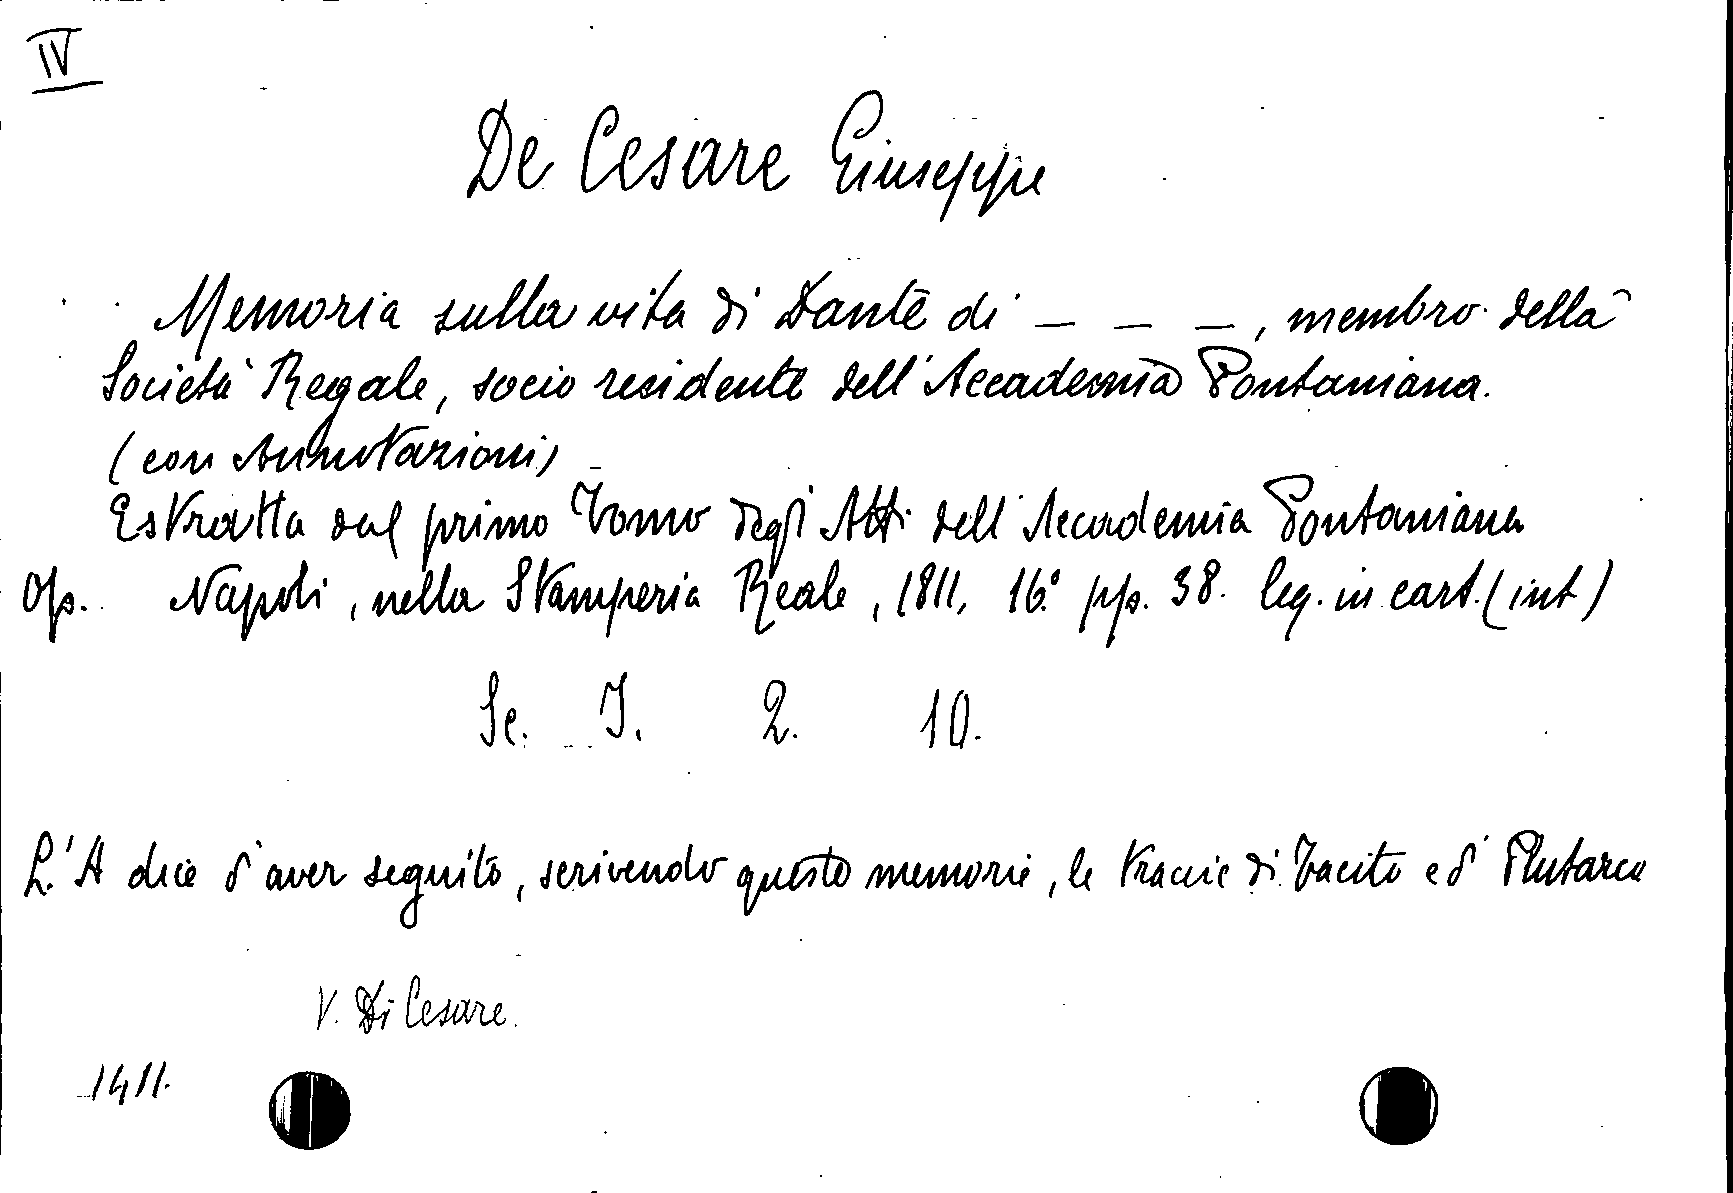 IV
De Cesare Giuseppe
Memoria sulla vita di Dante di _ _ _, membro della
Società Regale, socio residente dell'Accademia Pontaniana.
(con Annotazioni)
Estratta dal primo Tomo degli Atti dell'Accademia Pontaniana
Op. Napoli, nella Stamperia Reale, 1811, 16.° pp. 38. leg. in cart. (int)
Sc. I. 2. 10.
L'A dice d'aver seguito, scrivendo queste memorie, le traccie di Tacito e d'Plutarco
V. Di Cesare.
1411.